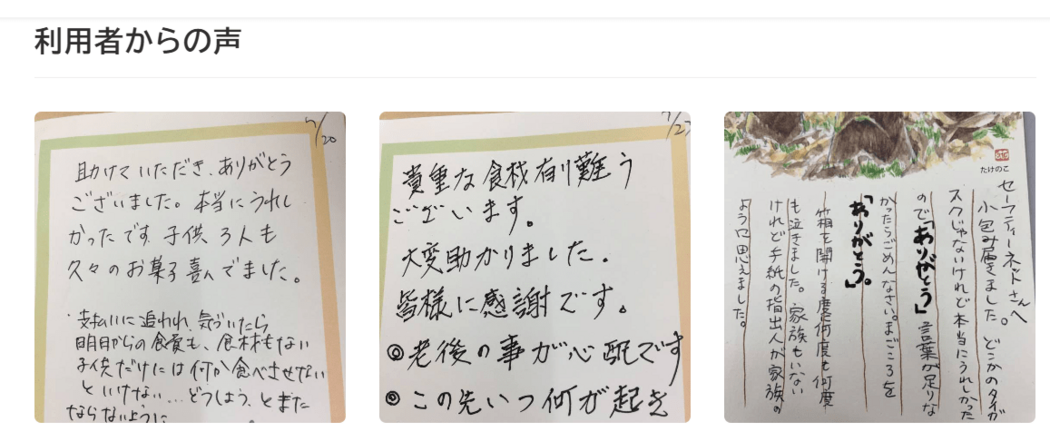 利用者からの声
7/20
助けていただき、ありがとう
ございました。本当にうれし
かったです 子供 3人も
久々のお菓子喜んでました。
・支払いに追われ、気づいたら
明日からの食費も、食材もない
子供だけには何か食べさせない
と いけない…どうしよう、とまた
ならないように
7/27
貴重な食材有り難う
ございます。
大変助かりました.
皆様に感謝です。
◎老後の事が心配です
◎この先いつ何が起き
たけのこ
セーフティーネットさんへ
小包み届きました。どこかのタイガー
スクじゃないけれど本当にうれしかった
ので「ありがとう」言葉が足りな
かったらごめんなさい。まごころを
「ありがとう。」
箱を開ける度に何度も何度
も泣きました。家族もいない
けれど手紙の指出人が家族の
ように思えました。